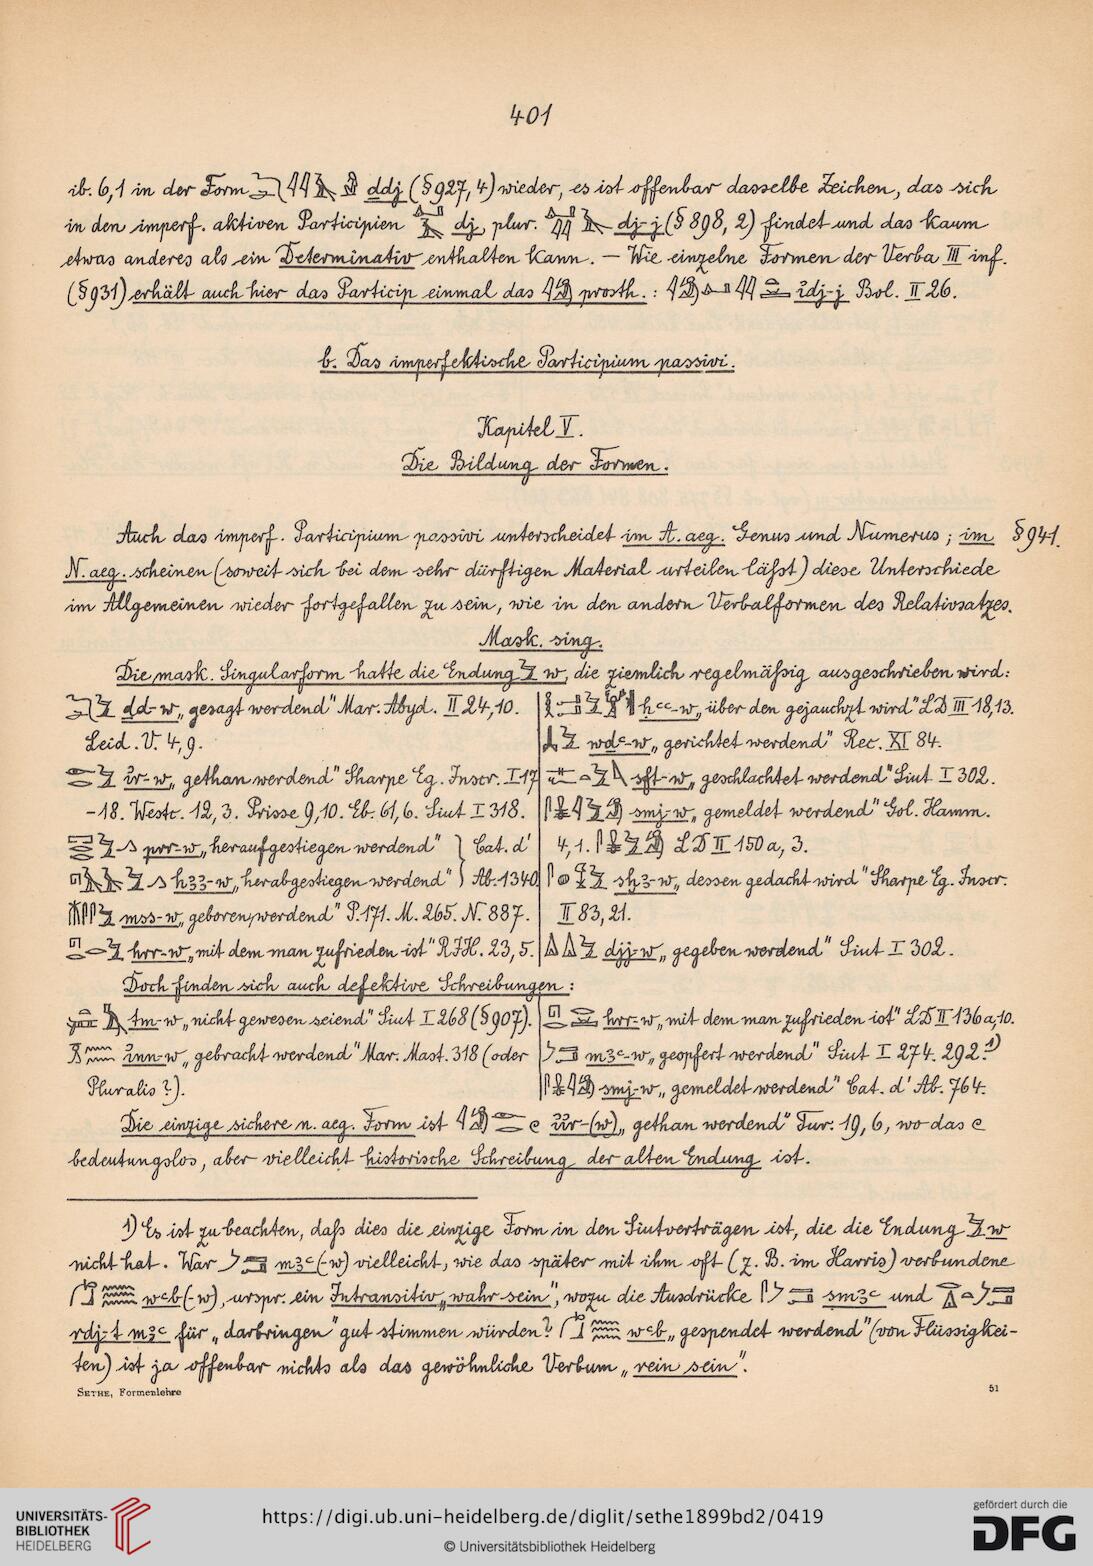 401
ib. 6,1 in der Form ddj (§ 927, 4) wieder, es ist offenbar dasselbe Zeichen, das sich
in den imperf. aktiven Participien dj, plur. dj-j (§ 898, 2) findet und das kaum
etwas anderes als ein Determinativ enthalten kann. — Wie einzelne Formen der Verba III inf.
(§ 931) erhält auch hier das Particip einmal das prosth.: ꞽdj-j Bol. II 26.
b. Das imperfektische Participium passivi.
Kapitel V.
Die Bildung der Formen.
Auch das imperf. Participium passivi unterscheidet im A. aeg. Genus und Numerus; im § 941.
N. aeg. scheinen (soweit sich bei dem sehr dürftigen Material urteilen läßt) diese Unterschiede
im Allgemeinen wieder fortgefallen zu sein, wie in den andern Verbalformen des Relativsatzes.
Mask. sing.
Die mask. Singularform hatte die Endung w, die ziemlich regelmäßig ausgeschrieben wird:
dd-w „gesagt werdend" Mar. Abyd. II 24,10.
Leid. V. 4,9.
ꞽr-w „gethan werdend" Sharpe Eg. Inscr. I 17
-18. Westc. 12, 3. Prisse 9,10. Eb. 61,6. Siut I 318.
prr-w „heraufgestiegen werdend" } Cat. d'
hꜣꜣ-w „herabgestiegen werdend" } Ab. 1340
mss-w „geboren werdend" P. 171. M. 265. N. 887.
hrr-w „mit dem man zufrieden ist" RIH. 23, 5.
ḥꜥꜥ-w „über den gejauchzt wird" LD III 18,13.
wdꜥ-w „gerichtet werdend" Rec. XI 84.
sft-w „geschlachtet werdend" Siut I 302.
smj-w „gemeldet werdend" Gol. Hamm.
4,1. LD II 150 a, 3.
sḫꜣ-w „dessen gedacht wird" Sharpe Eg. Inscr.
II 83, 21.
djj-w „gegeben werdend" Siut I 302.
Doch finden sich auch defektive Schreibungen:
tm-w „nicht gewesen seiend" Siut I 268 (§ 907).
ꞽnn-w „gebracht werdend" Mar. Mast. 318 (oder
Pluralis?).
hrr-w „mit dem man zufrieden ist" LD II 136 a, 10.
mꜣꜥ-w „geopfert werdend" Siut I 274. 292. 1)
smj-w „gemeldet werdend" Cat. d' Ab. 764.
Die einzige sichere n. aeg. Form ist ꞽꞽr-(w) „gethan werdend" Tur. 19, 6, wo das e
bedeutungslos, aber vielleicht historische Schreibung der alten Endung ist.
1) Es ist zu beachten, daß dies die einzige Form in den Siutverträgen ist, die die Endung w
nicht hat. War mꜣꜥ(-w) vielleicht, wie das später mit ihm oft (z. B. im Harris) verbundene
wꜥb(-w), urspr. ein Intransitiv „wahr sein", wozu die Ausdrücke smꜣꜥ und
rdj-t mꜣꜥ für „darbringen" gut stimmen würden? wꜥb „gespendet werdend" (von Flüssigkei-
ten) ist ja offenbar nichts als das gewöhnliche Verbum „rein sein".
SETHE, Formenlehre 51
UNIVERSITÄTS-
BIBLIOTHEK
HEIDELBERG
https://digi.ub.uni-heidelberg.de/diglit/sethe1899bd2/0419
© Universitätsbibliothek Heidelberg
gefördert durch die
DFG